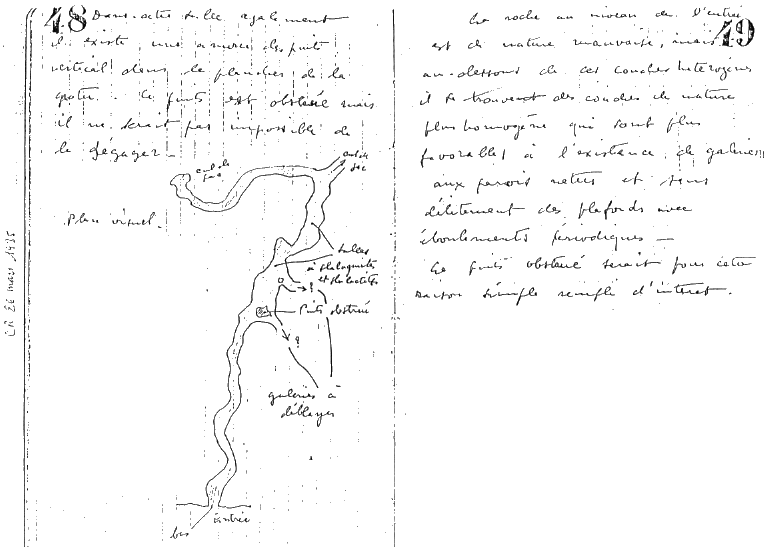 48
Dans cette salle également
il existe, une amorce de puits
vertical dans le plancher de la
grotte. Ce puits est obstrué mais
il ne serait pas impossible de
le dégager.
cul de
sac
cul de
sac
Plan visuel.
salles
à stalagmites
et stalactites
?
Puits obstrué
?
galeries à
déblayer
entrée
bas
CR 26 mars 1985
49
La roche au niveau de l'entrée
est de nature mauvaise, mais
au-dessous de ces couches hétérogènes
il se trouverait des couches de nature
plus homogène qui sont plus
favorables à l'existance de galeries
aux parois nettes et sans
délitement des plafonds avec
éboulements périodiques —
Ce puits obstrué serait pour cette
raison simple rempli d'interet.